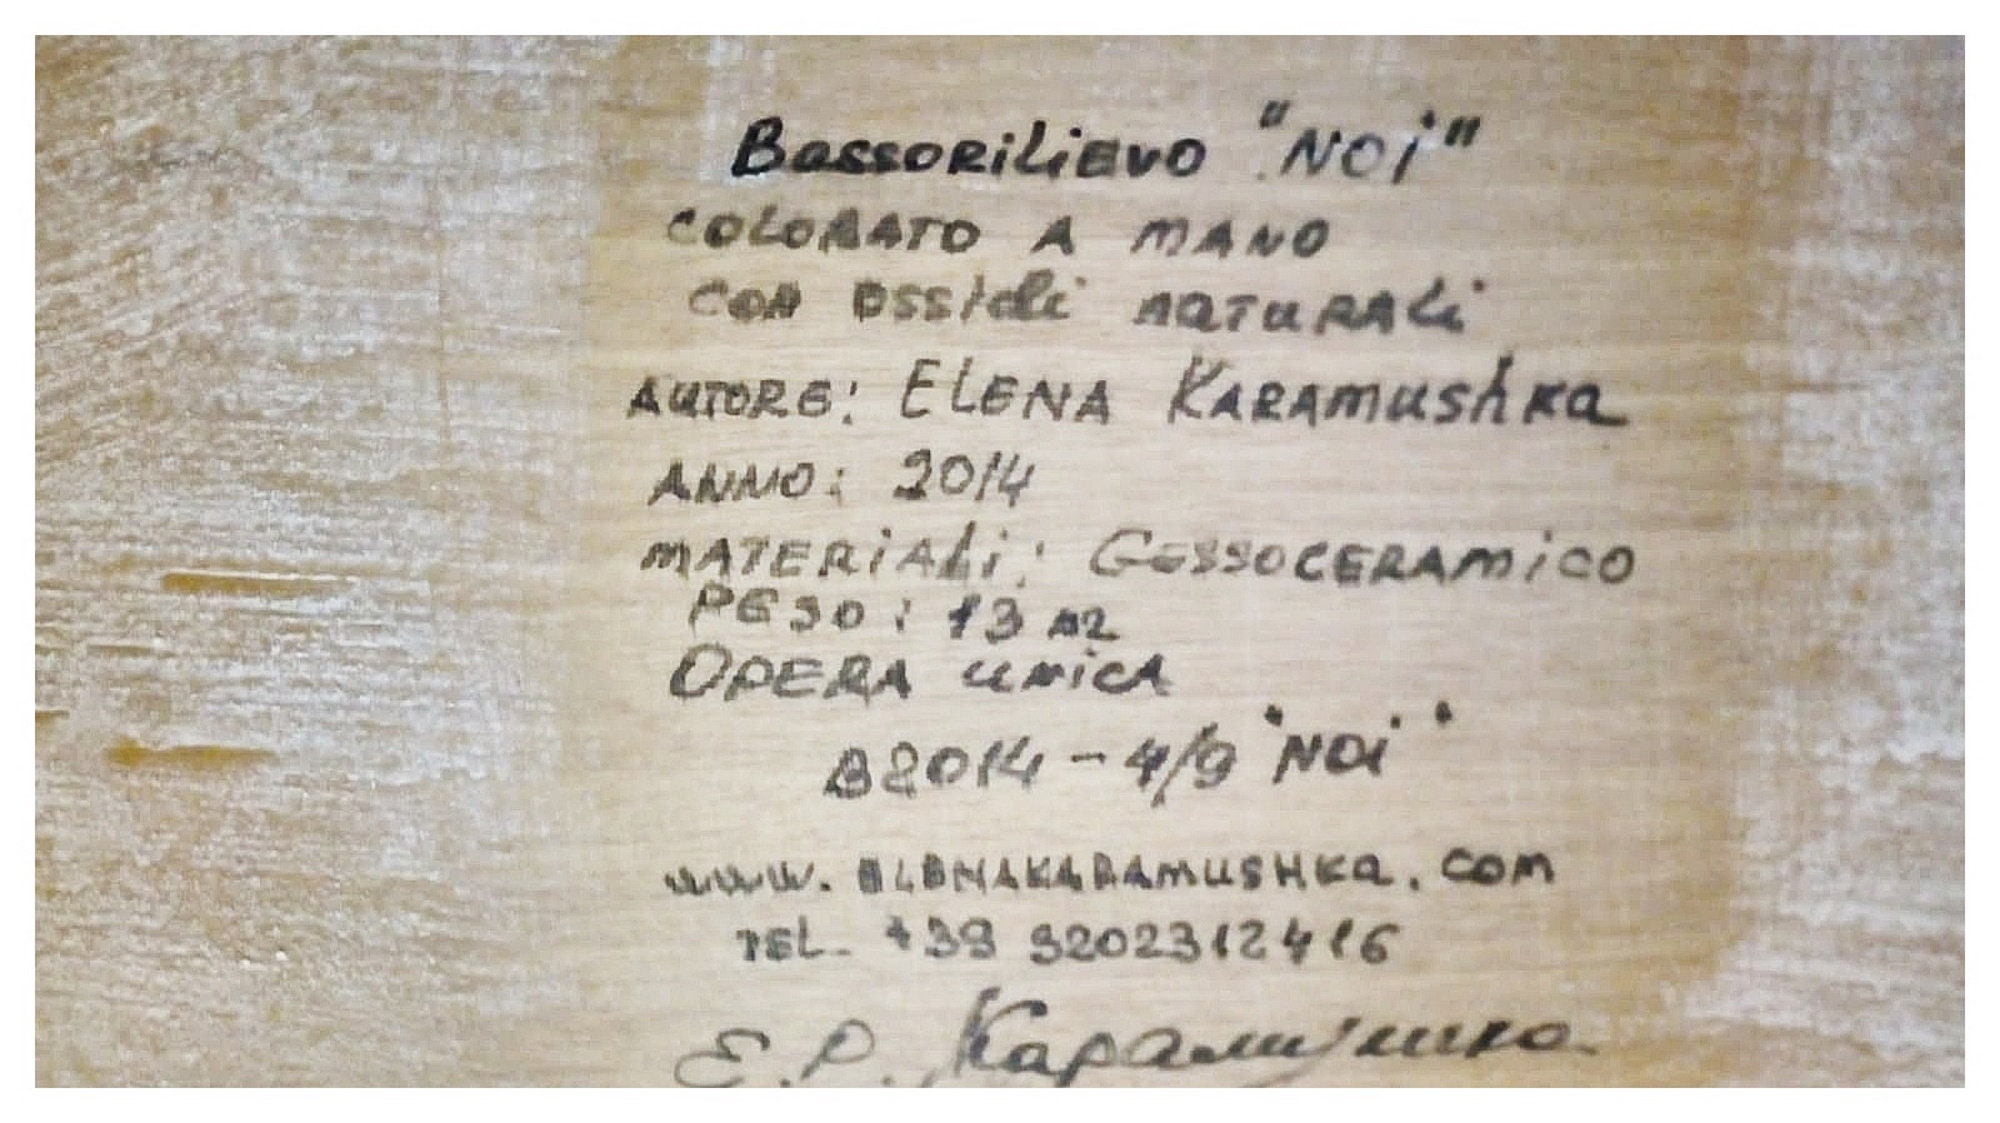 Bassorilievo "NOi"
COLORATO A MANO
CON OSSIDI NATURALi
AUTORE: ELENA KARAMUSHKA
ANNO: 2014
MATERiALi: GESSOCERAMiCO
PESO: 13
OPERA UNiCA
B2014-4/9 "NOi"
www.ELENAKARAMUSHKA.COM
TEL. +39 3202312416
Е.Р. Карамушка